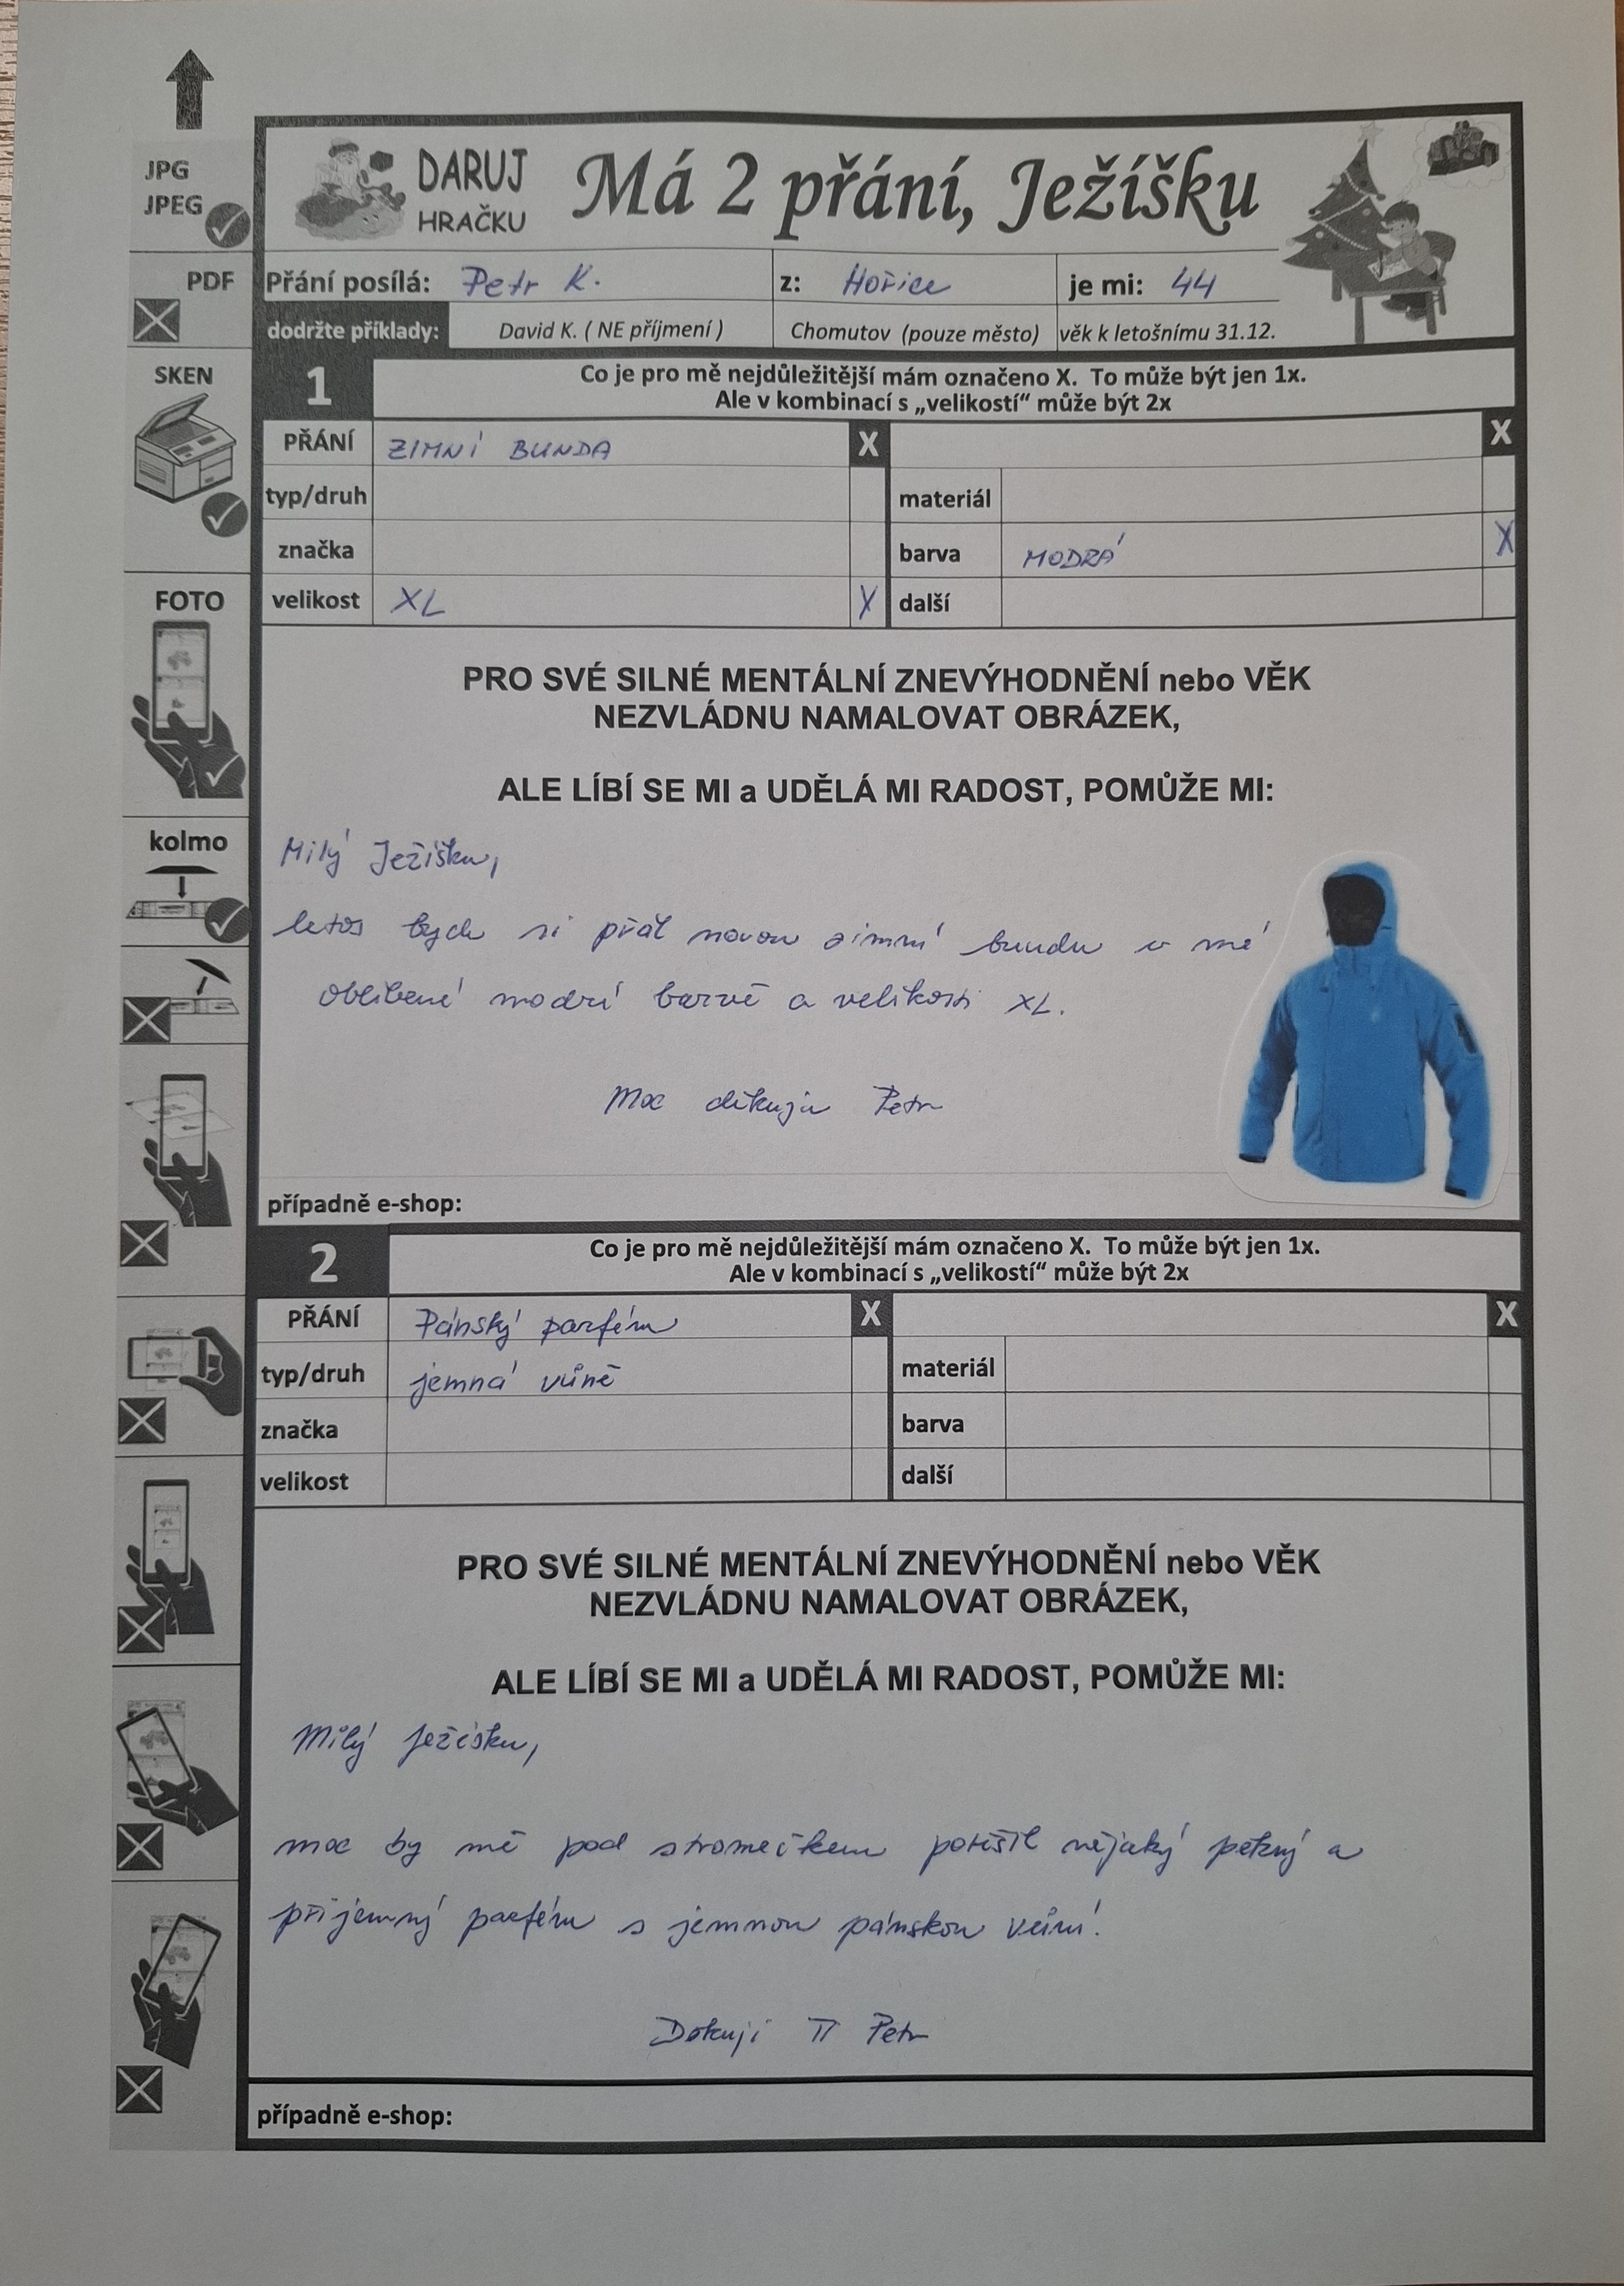 JPG
JPEG
PDF
SKEN
FOTO
kolmo
DARUJ
HRAČKU
Má 2 přání, Ježíšku
Přání posílá: Petr K. z: Hořice je mi: 44
dodržte příklady: David K. ( NE příjmení ) Chomutov (pouze město) věk k letošnímu 31.12.
1 Co je pro mě nejdůležitější mám označeno X. To může být jen 1x.
Ale v kombinací s „velikostí“ může být 2x
PŘÁNÍ ZIMNÍ BUNDA X X
typ/druh materiál
značka barva MODRÁ X
velikost XL X další
PRO SVÉ SILNÉ MENTÁLNÍ ZNEVÝHODNĚNÍ nebo VĚK
NEZVLÁDNU NAMALOVAT OBRÁZEK,
ALE LÍBÍ SE MI a UDĚLÁ MI RADOST, POMŮŽE MI:
Milý Ježíšku,
letos bych si přál novou zimní bundu v mé
oblíbené modré barvě a velikosti XL.
Moc děkuju Petr
případně e-shop:
2 Co je pro mě nejdůležitější mám označeno X. To může být jen 1x.
Ale v kombinací s „velikostí“ může být 2x
PŘÁNÍ Pánský parfém X X
typ/druh jemná vůně materiál
značka barva
velikost další
PRO SVÉ SILNÉ MENTÁLNÍ ZNEVÝHODNĚNÍ nebo VĚK
NEZVLÁDNU NAMALOVAT OBRÁZEK,
ALE LÍBÍ SE MI a UDĚLÁ MI RADOST, POMŮŽE MI:
Milý Ježíšku,
moc by mě pod stromečkem potěšil nějaký pěkný a
příjemný parfém s jemnou pánskou vůní.
Děkuji Ti Petr
případně e-shop: